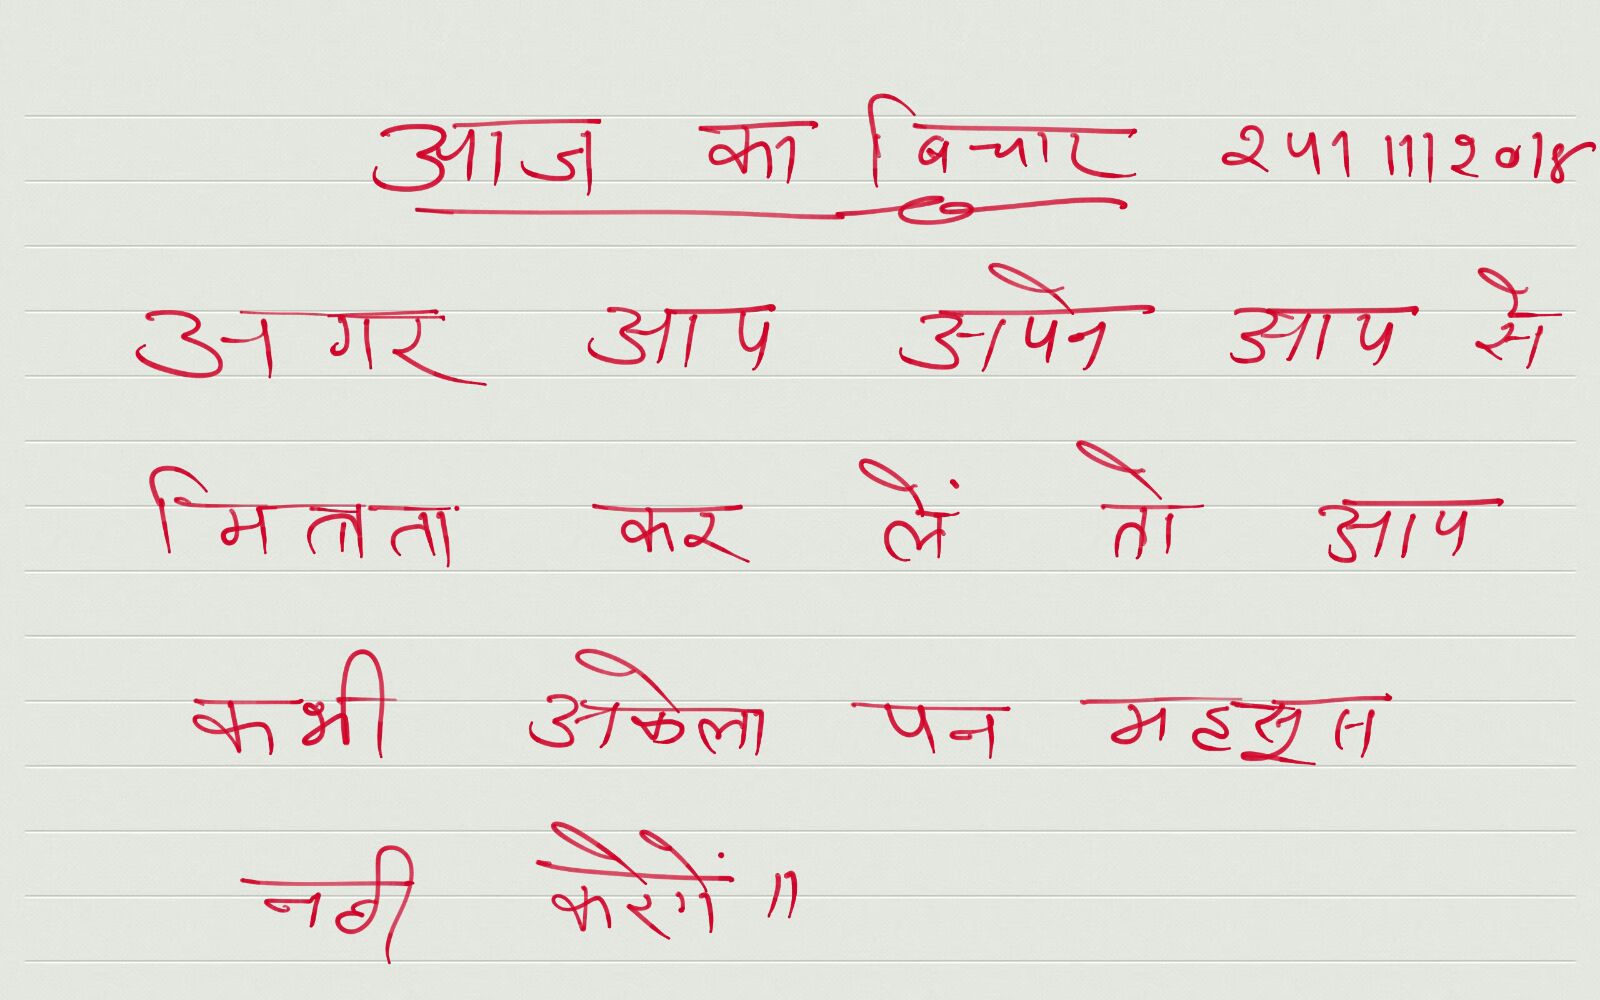 आज का बिचार २५।११।२०१४
अगर आप अपने आप से
मित्रता कर लें तो आप
कभी अकेला पन महसूस
नही करेगें॥